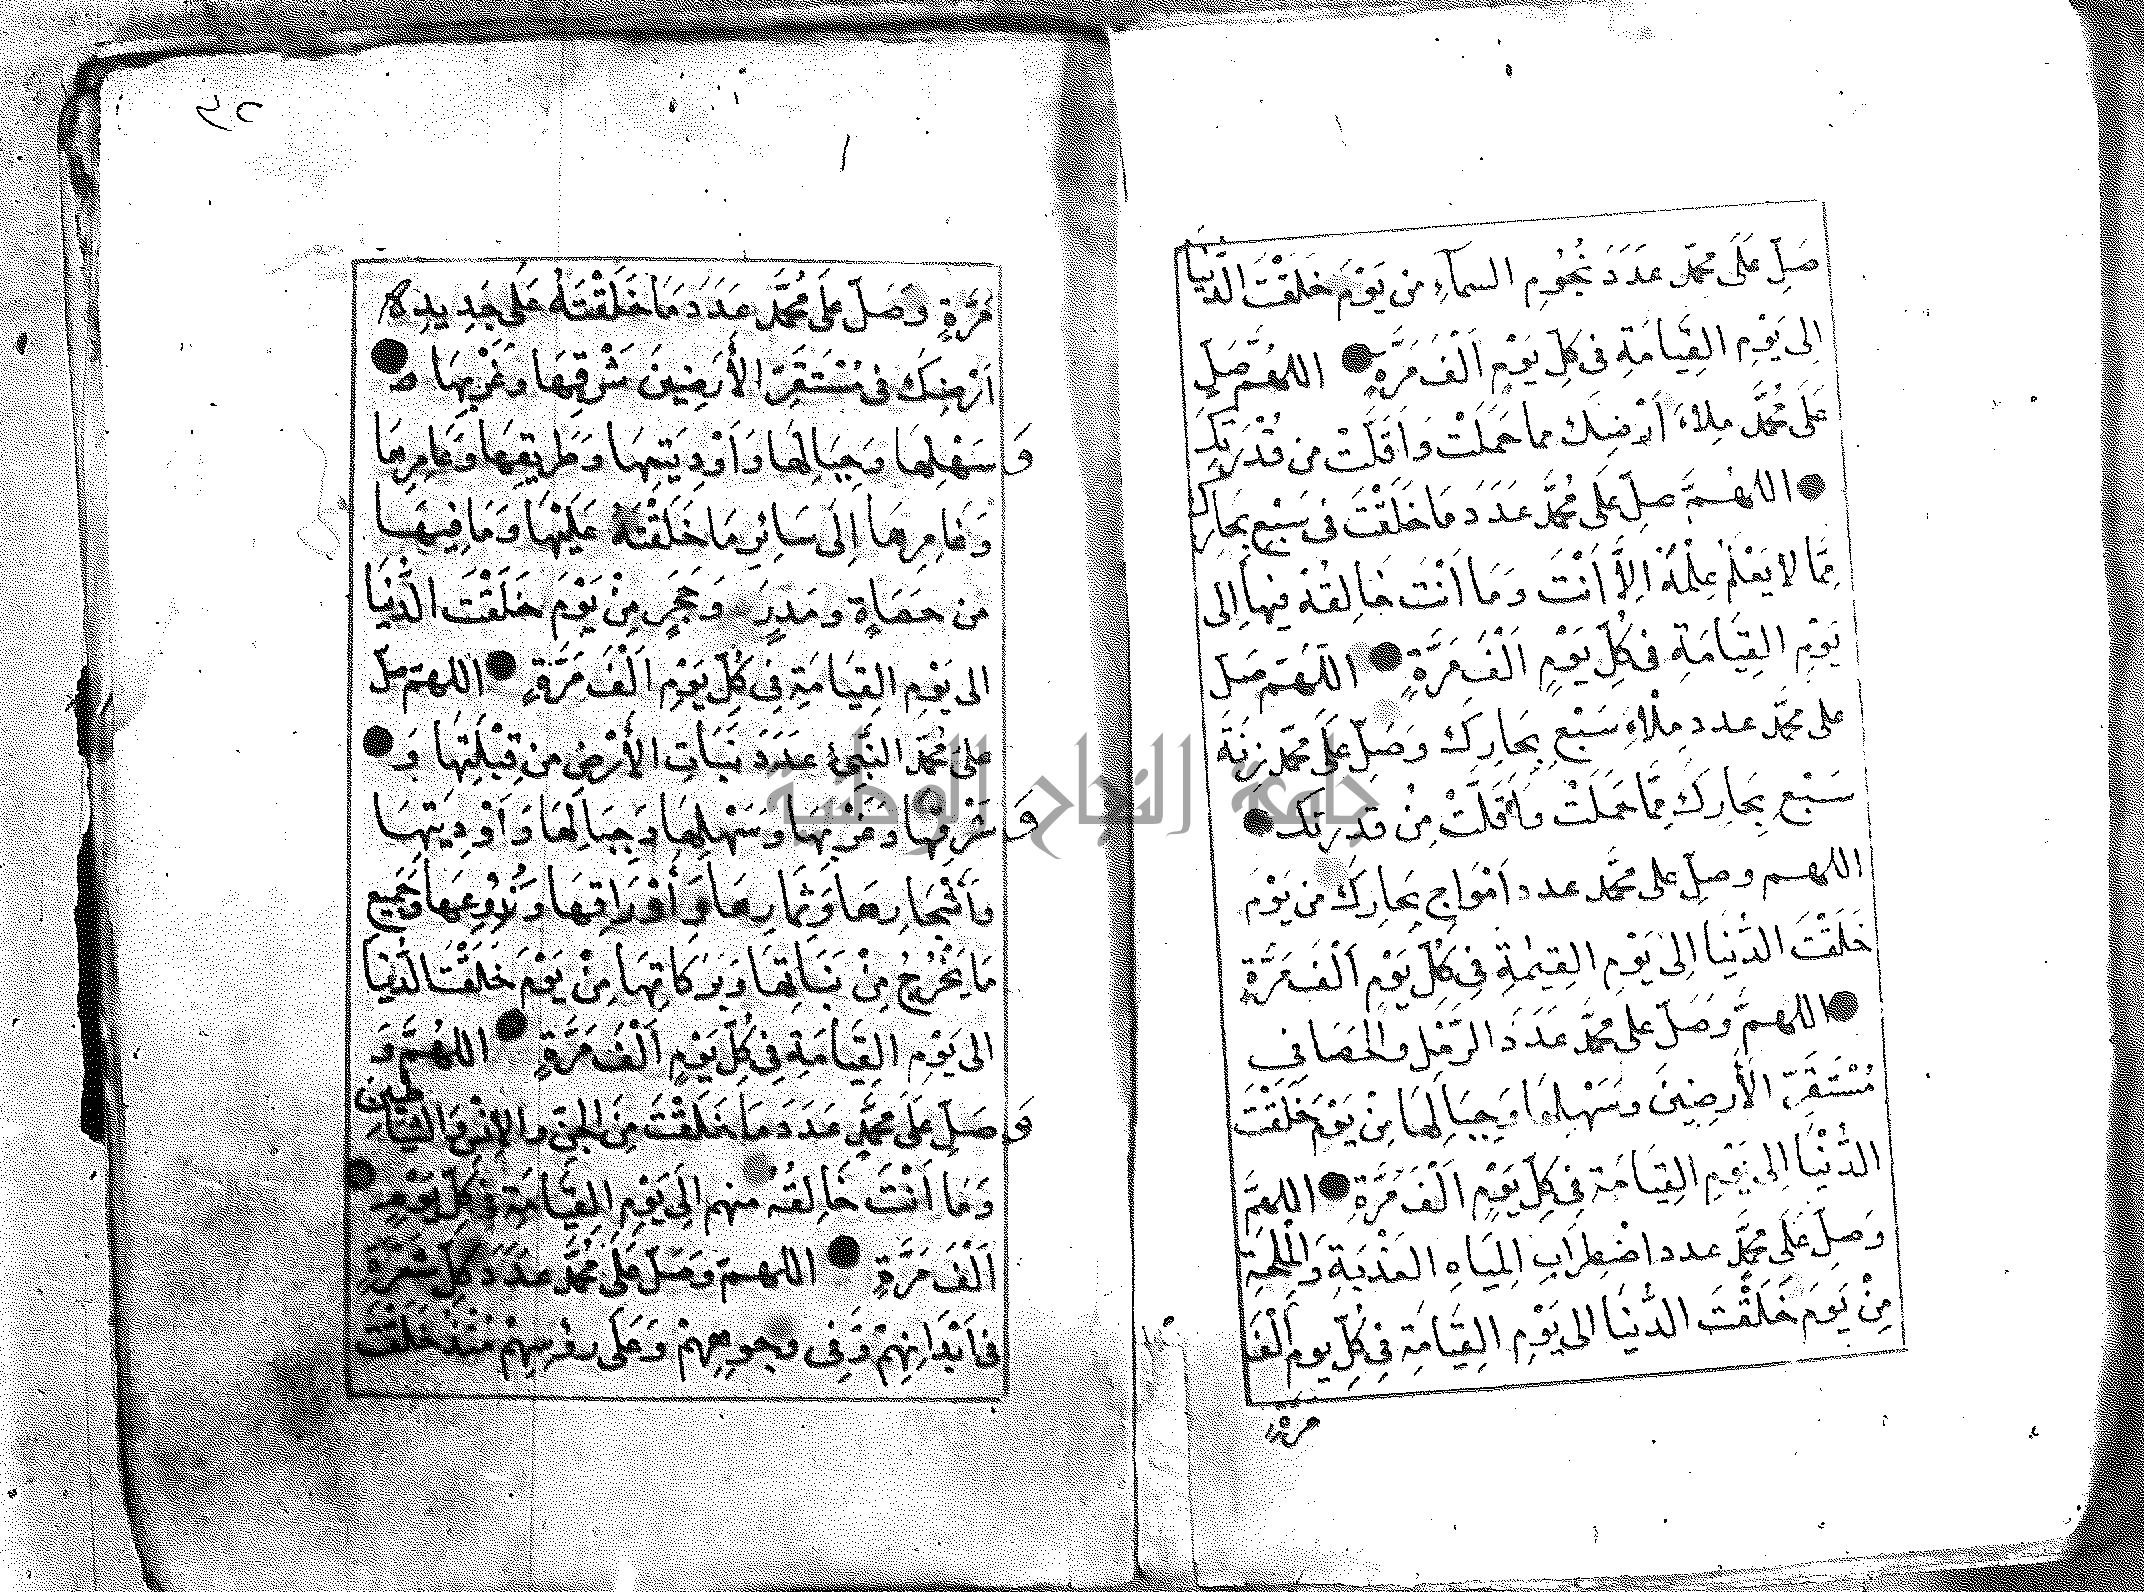 صَلِّ عَلَى مُحَمَّد عَدَدَ نُجُومِ السمآءِ مِنْ يَوْمَ خَلَقْتَ الدُّنْيَا
اِلى يَوْمِ القِيَامَةِ فى كلِّ يَوْمٍ اَلْفَ مَرَّةٍ اللهُمَّ صَلِّ
عَلَى مُحَمَّد مِلاءَ اَرْضِكَ مما حَمَلَتْ وَاَقَلَّتْ مِن قُدْرَتِكَ
اللهُمَّ صَلِّ عَلَى مُحَمَّد عَدَدَ مَا خَلَقْتَ فى سَبْعِ بِحَارِكَ
مِمَّا لا يَعْلَمُ عِلْمَهُ اِلاَّ اَنْتَ وَمَا اَنْتَ خَالِقُهُ فيها اِلى
يَوْمِ القِيَامَةِ فى كُلِّ يَوْمٍ اَلْفَ مَرَّةٍ اللّهُمَّ صَلِّ
على مُحَمَّد عدد مِلْاءِ سَبْعِ بِحَارِكَ وَصَلِّ عَلَى مُحَمَّد زِنَةَ
سَبْعِ بِحَارِكَ مِمَّا حَمَلَتْ وَاَقَلَّتْ مِنْ قدرتِكَ
اللهم وصلِّ على مُحَمَّد عدد اَمْوَاجِ بِحَارِكَ مِن يَوْمَ
خَلَقْتَ الدُّنْيَا اِلى يَوْمِ القِيٰمةِ فى كُلِّ يَوْمٍ اَلْفَ مَرَّةٍ
اللهمَّ وَصَلِّ على مُحَمَّد عَدَدَ الرَّمْلِ وَالحَصَا فى
مُسْتَقَرِّ الأَرَضِينَ وَسَهْلِهَا وَجِبَالِهَا مِنْ يَوْمَ خَلَقْتَ
الدُّنْيَا اِلى يَوْمِ القِيَامَة فى كلِّ يَوْمٍ اَلْفَ مَرَّةٍ اللهُمَّ
وَصَلِّ عَلَى مُحَمَّد عدد اضْطِرَابِ المِيَاهِ العَذْبَةِ وَالمِلْحَةِ
مِنْ يَوْمَ خَلَقْتَ الدُّنْيَا الى يَوْمِ القِيَامَةِ فى كُلِّ يومٍ اَلْفَ
مَرَّةٍ
مَرَّةٍ وَصَلِّ عَلَى مُحَمَّد عَدَدَ مَا خَلَقْتَهُ عَلَى جَدِيدِ
اَرْضِكَ فى مُسْتَقَرِّ الأَرَضِينَ شَرْقِهَا وَغَرْبِهَا
وَسَهْلِهَا وَجِبَالِهَا وَاَوْدِيَتِهَا وَطَرِيقِهَا وَعَامِرِهَا
وَغَامِرِهَا اِلَى سَائِرِ مَا خَلَقْتَهُ عَلَيْهَا وَمَا فِيهَا
مِن حَصَاةٍ وَمَدَرٍ وَحَجَرٍ مِنْ يَوْمَ خَلَقْتَ الدُّنْيَا
الى يَوْمِ القِيَامَةِ فى كُلِّ يَوْمٍ اَلْفَ مَرَّةٍ اللهمَّ صَلِّ
عَلَى مُحَمَّد النَّبِىِّ عَدَدَ نَبَاتِ الأَرْضِ مِن قِبْلَتِهَا وَ
وَشَرْقِهَا وَغَرْبِهَا وَسَهْلِهَا وَجِبَالِهَا وَاَوْدِيَتِهَا
وَاَشْجَارِهَا وَثِمَارِهَا وَاَوْرَاقِهَا وَزُرُوعِهَا وَجَمِيعِ
مَا يَخْرُجُ مِنْ نَبَاتِهَا وَبَرَكَاتِهَا مِنْ يَوْمَ خَلَقْتَ الدُّنْيَا
الى يَوْمِ القِيَامَةِ فى كُلِّ يَوْمٍ اَلْفَ مَرَّةٍ اللهُمَّ وَ
وَصَلِّ عَلَى مُحَمَّدٍ عَدَدَ مَا خَلَقْتَ مِنَ الجِنِّ وَالاِنْسِ وَالشَّيَاطِينِ
وَمَا اَنْتَ خَالِقُهُ مِنهم اِلَى يَوْمِ القِيَامَةِ فى كُلِّ يَوْمٍ
اَلْفَ مَرَّةٍ اللهمَّ وَصَلِّ عَلَى مُحَمَّد عَدَدَ كُلِّ شَعْرَةٍ
فى اَبْدَانِهِمْ وَفى وجوههِمْ وَعَلَى رءُوسِهِمْ مُنْذُ خَلَقْتَ
جامعة النجاح الوطنية